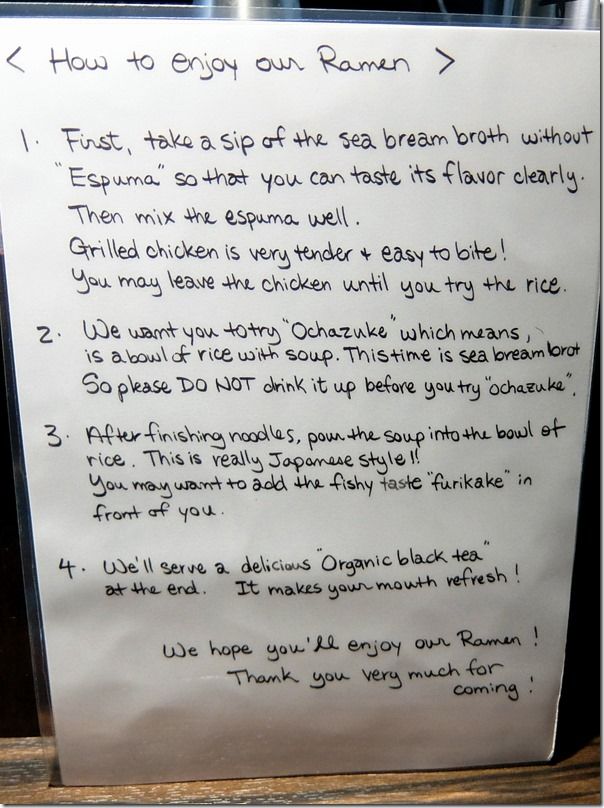 < How to enjoy our Ramen >
1. First, take a sip of the sea bream broth without
"Espuma" so that you can taste its flavor clearly.
Then mix the espuma well.
Grilled chicken is very tender + easy to bite!
You may leave the chicken until you try the rice.
2. We want you to try "Ochazuke" which means,
is a bowl of rice with soup. This time is sea bream brot
So please DO NOT drink it up before you try "ochazuke".
3. After finishing noodles, pour the soup into the bowl of
rice. This is really Japanese style!!
You may want to add the fishy taste "furikake" in
front of you.
4. We'll serve a delicious "Organic black tea"
at the end. It makes your mouth refresh!
We hope you'll enjoy our Ramen!
Thank you very much for
coming!